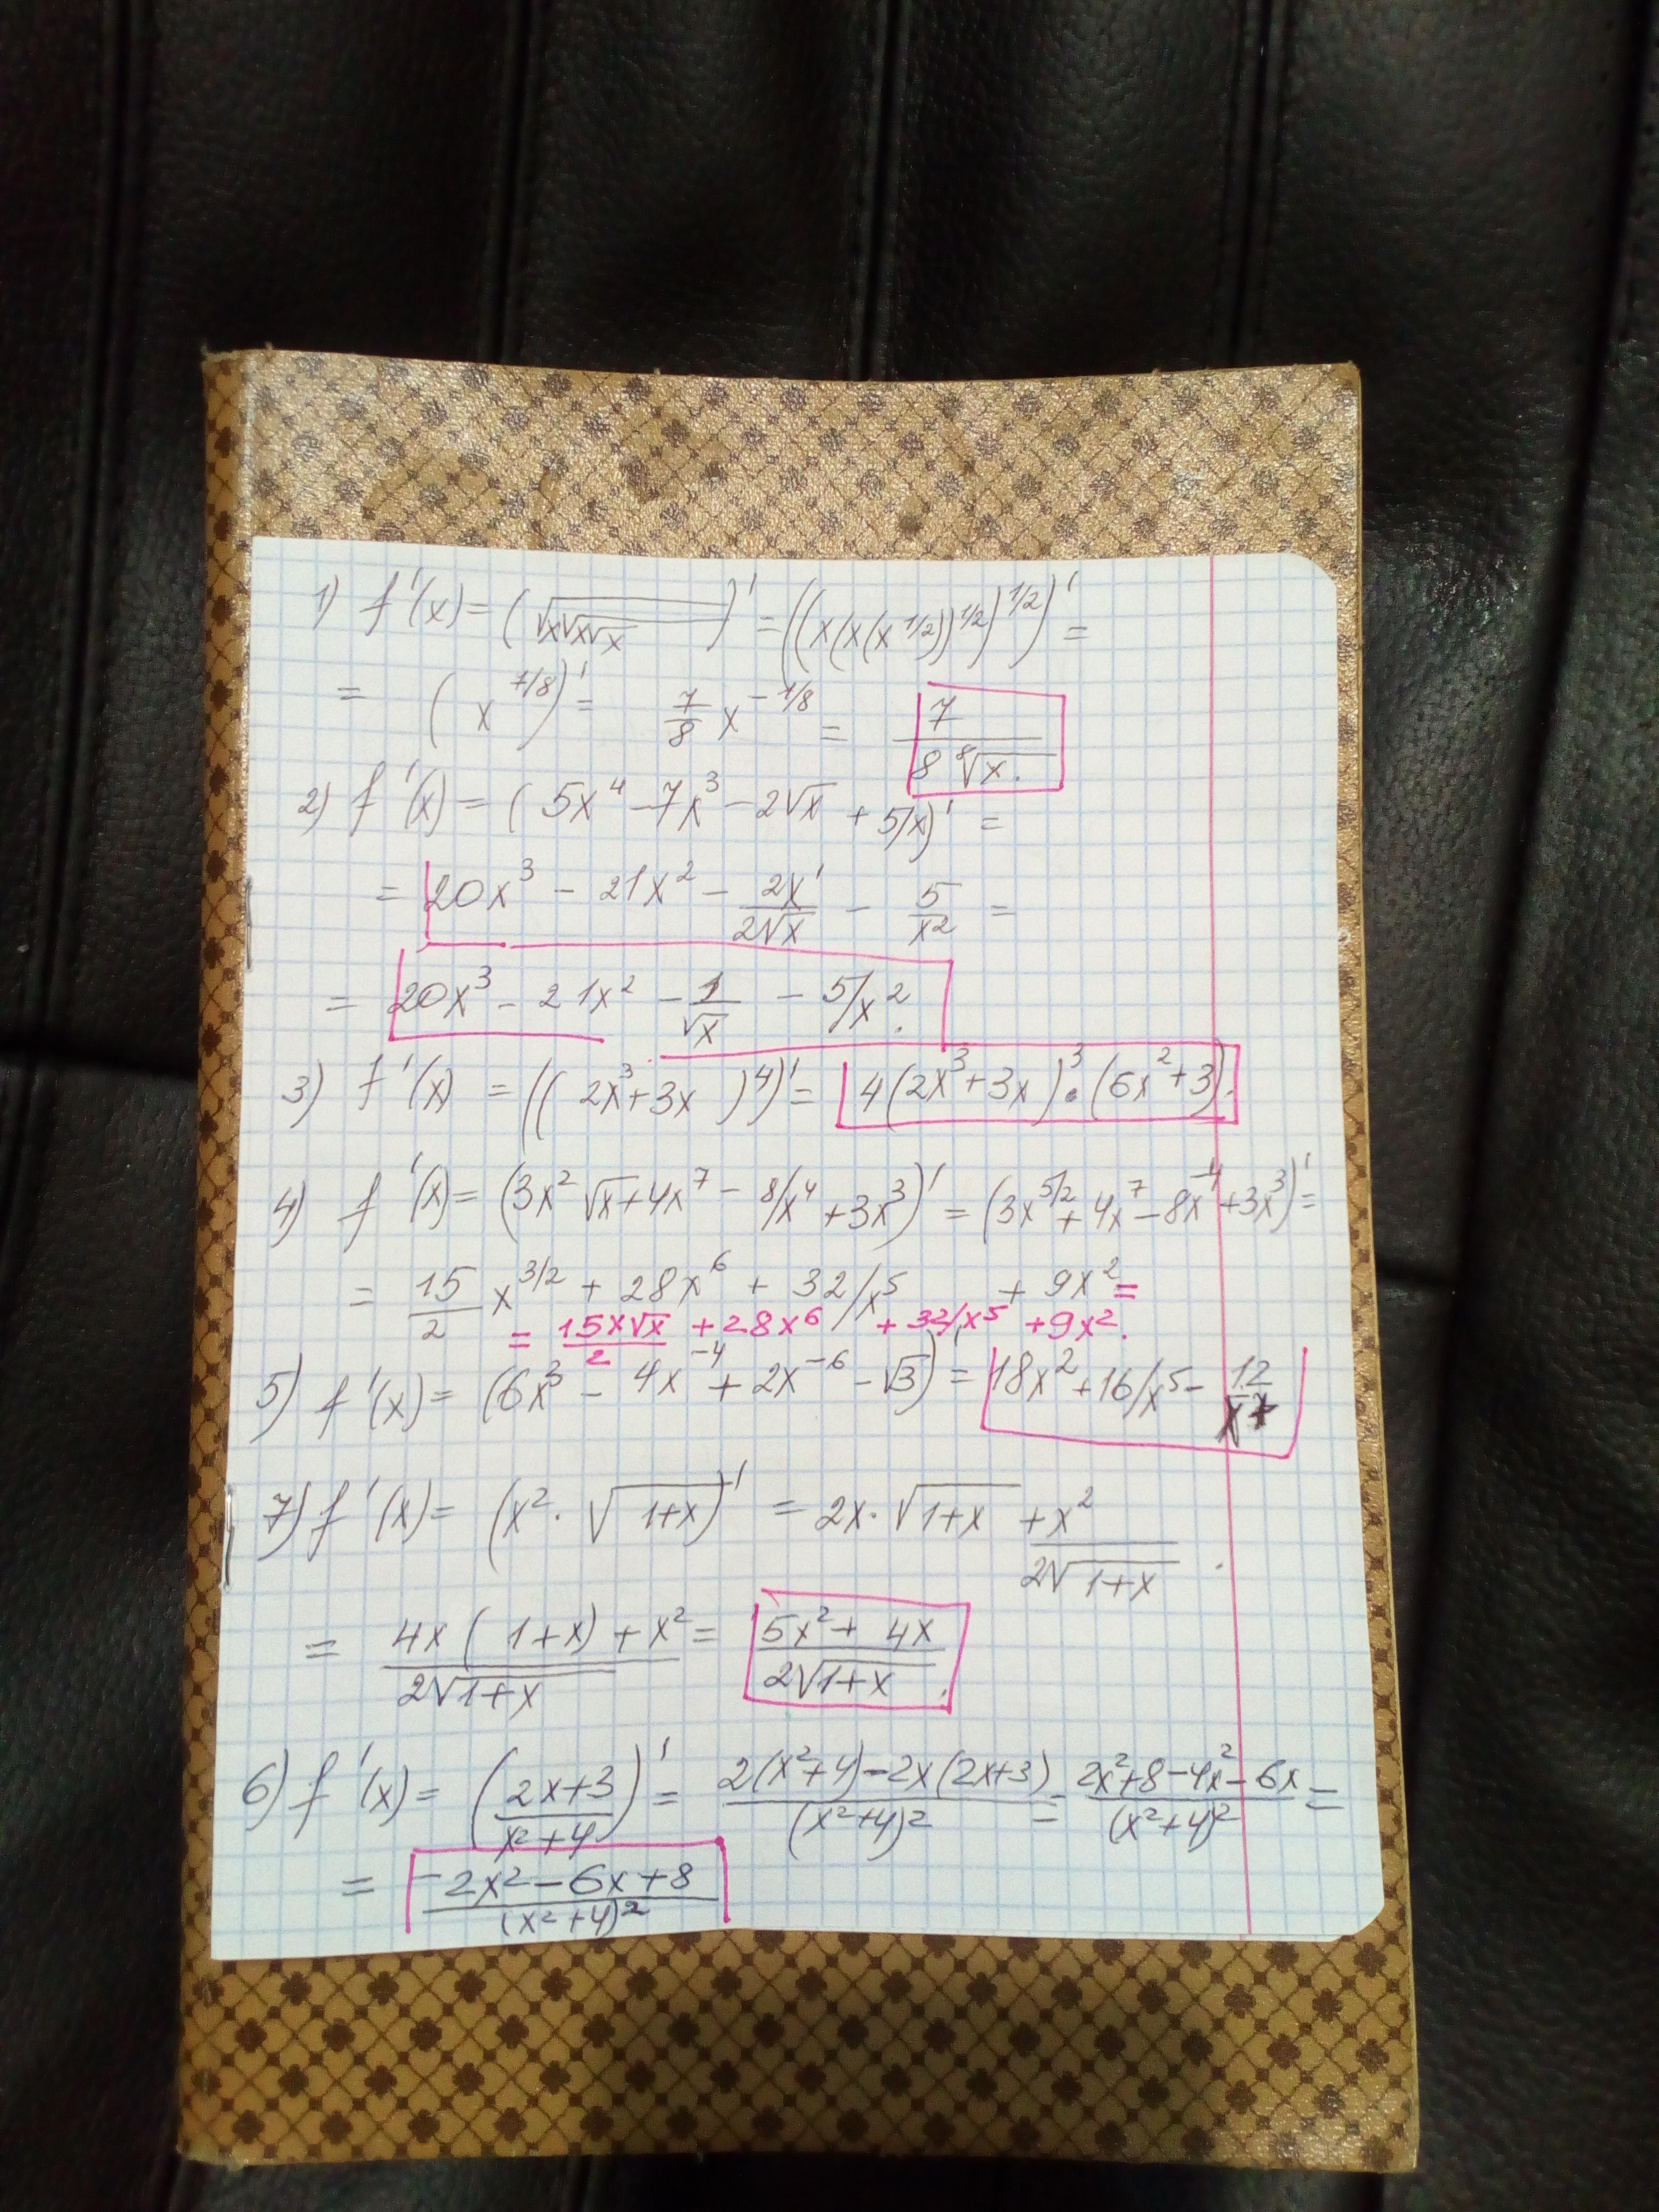 1) f'(x) = (√x√x√x)' = ((x(x(x^1/2))^1/2)^1/2)' =
= (x^7/8)' = 7/8 x^-1/8 = 7/(8 ⁸√x).
2) f'(x) = (5x^4 - 7x^3 - 2√x + 5/x)' =
= 20x^3 - 21x^2 - 2x'/(2√x) - 5/x^2 =
= 20x^3 - 21x^2 - 1/√x - 5/x^2.
3) f'(x) = ((2x^3+3x)^4)' = 4(2x^3+3x)^3 · (6x^2+3).
4) f'(x) = (3x^2 √x + 4x^7 - 8/x^4 + 3x^3)' = (3x^5/2 + 4x^7 - 8x^-4 + 3x^3)' =
= 15/2 x^3/2 + 28x^6 + 32/x^5 + 9x^2 =
= 15x√x/2 + 28x^6 + 32/x^5 + 9x^2.
5) f'(x) = (6x^3 - 4x^-4 + 2x^-6 - √3)' = 18x^2 + 16/x^5 - 12/x^7
7) f'(x) = (x^2 · √(1+x))' = 2x · √(1+x) + x^2/(2√(1+x)).
= (4x(1+x) + x^2)/(2√(1+x)) = (5x^2 + 4x)/(2√(1+x)).
6) f'(x) = ((2x+3)/(x^2+4))' = (2(x^2+4) - 2x(2x+3))/(x^2+4)^2 = (2x^2+8-4x^2-6x)/(x^2+4)^2 =
= (-2x^2-6x+8)/(x^2+4)^2